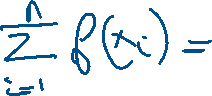 \sum_{i=1}^{n} f(x_i) =